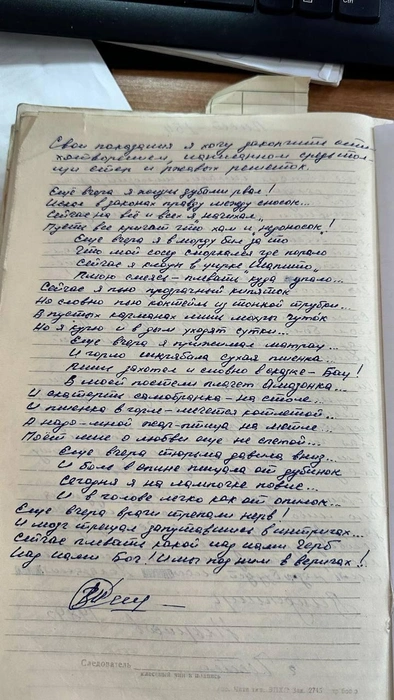 Свои показания я хочу закончить сти-
хотворением, написанном среди тол-
щи стен и ржавых решеток.
Ещё вчера я кашу зубами рвал!
Искал в законах правду между сносок...
Сейчас на всё и всех я "начихал"
Пусть все кричат что хам и "недоносок"!
Еще вчера я в морду бил за то
Что мой сосед сморкался где попало
Сейчас я как будто в цирке "Шапито"
Пляшу смеясь – плевать куда упало...
Сейчас я пью прозрачный кипяток
Но словно пью коктейль из тонкой трубки...
В пустых карманах лишь махры чуток
Но я курю и в дым уходят сутки...
Еще вчера я прижимал матрац...
И горло шкрябала сухая пшенка...
лишь захотел и словно в сказке – Бац!
В моей постели плачет Амазонка...
И скатерть самобранка – на столе...
И пшенка в горле – мечется котлетой...
А надо мной жар-птица на метле...
Поёт мне о любви еще не спетой...
Еще вчера тюрьма давила вниз...
И боль в спине пищала от дубинок
Сегодня я на лампочке повис...
И в голове легко как от опилок...
Еще вчера врачи трепали нерв!
И мозг трещал запутавшись в интригах...
Сейчас плевать какой над нами Герб
Над нами Бог! И мы под ним в веригах!
Следователь